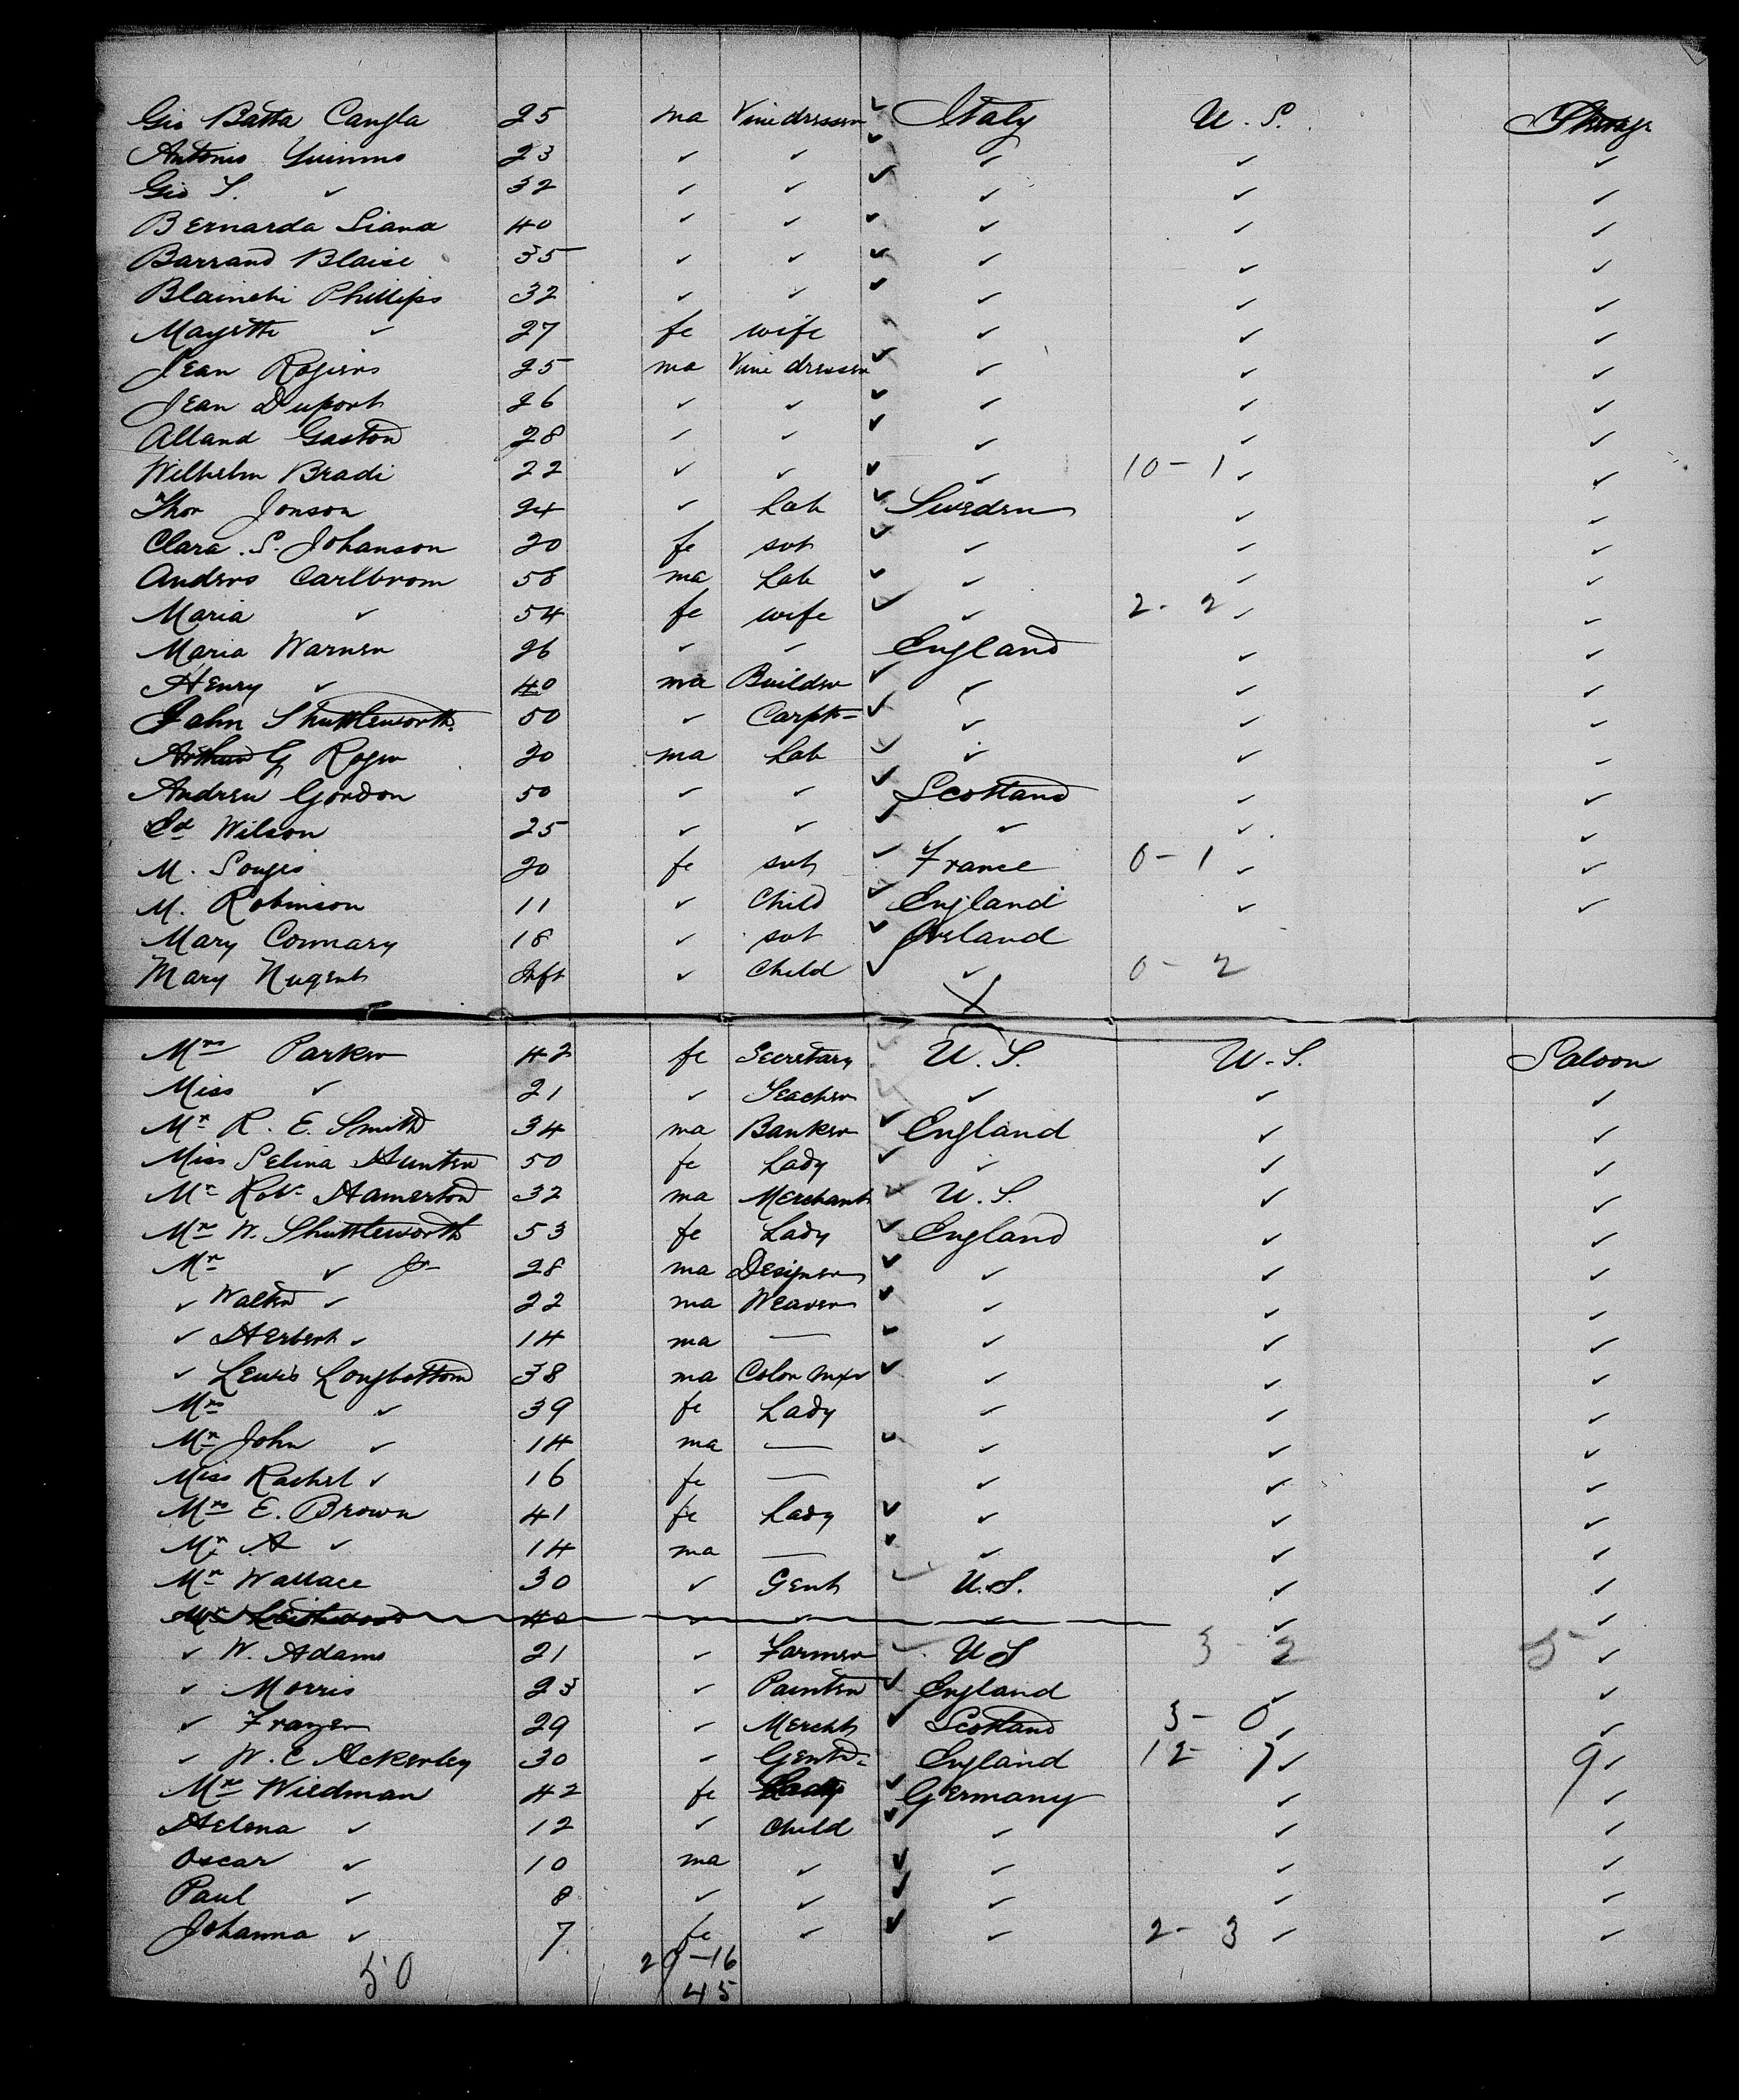 Gio Batta Cangla 25 ma Vinedresser ✓ Italy U.S. Steerage
Antonio 23 ✓ ✓ ✓ ✓ ✓ ✓
Gio S. ✓ 32 ✓ ✓ ✓ ✓ ✓ ✓
Bernarda Siana 40 ✓ ✓ ✓ ✓ ✓ ✓
Barrand Blaise 35 ✓ ✓ ✓ ✓ ✓ ✓
Blainchi Phillips 32 ✓ ✓ ✓ ✓ ✓ ✓
Mayette ✓ 27 fe wife ✓ ✓ ✓
Jean Rogiers 25 ma Vine dresser ✓ ✓ ✓ ✓
Jean Duport 26 ✓ ✓ ✓ ✓ ✓ ✓
Alland Gaston 28 ✓ ✓ ✓ ✓ ✓ ✓
Wilhelm Bradi 22 ✓ ✓ ✓ ✓ 10-1 ✓ ✓
Thor Jonson 24 ✓ Lab ✓ Sweden ✓ ✓
Clara S. Johanson 20 fe svt ✓ ✓ ✓ ✓
Anders Carlbrom 58 ma Lab ✓ ✓ ✓ ✓
Maria ✓ 54 fe wife ✓ ✓ 2-2 ✓ ✓
Maria Warner 26 ✓ ✓ England ✓ ✓
Henry ✓ 40 ma Builder ✓ ✓ ✓ ✓
John Shuttleworth 50 ✓ Carptr ✓ ✓ ✓ ✓
Arthur G Roger 20 ma Lab ✓ ✓ ✓ ✓
Andrew Gordon 50 ✓ ✓ ✓ Scotland ✓ ✓
Ed Wilson 25 ✓ ✓ ✓ ✓ ✓ ✓
M. Souges 20 fe svt ✓ France 0-1 ✓ ✓
M. Robinson 11 ✓ Child ✓ England ✓ ✓
Mary Connary 18 ✓ svt ✓ Ireland
Mary Nugent Inft ✓ Child ✓ ✓ 0-2
X
Mrs Parker 42 fe Secretary ✓ U.S. U.S. Saloon
Miss ✓ 21 ✓ Teacher ✓ ✓ ✓ ✓
Mr R. E. Smith 34 ma Banker ✓ England ✓ ✓
Miss Selina Hunter 50 fe Lady ✓ ✓ ✓ ✓
Mr Robt Hamerton 32 ma Merchant ✓ U.S. ✓ ✓
Mrs W. Shuttleworth 53 fe Lady ✓ England ✓ ✓
Mr ✓ Jr 28 ma Designer ✓ ✓ ✓ ✓
✓ Walter ✓ 22 ma Weaver ✓ ✓ ✓ ✓
✓ Herbert ✓ 14 ma — ✓ ✓ ✓ ✓
✓ Lewis Longbottom 38 ma Color mxr ✓ ✓ ✓ ✓
Mrs ✓ 39 fe Lady ✓ ✓ ✓
Mr John ✓ 14 ma — ✓ ✓ ✓ ✓
Miss Rachel ✓ 16 fe — ✓ ✓ ✓
Mrs E. Brown 41 fe Lady ✓ ✓ ✓ ✓
Mr A ✓ 14 ma — ✓ ✓ ✓ ✓
Mr Wallace 30 ✓ Gent ✓ U.S. ✓ ✓
Mr 40 ✓ ✓ ✓ ✓ ✓
✓ W. Adams 21 ✓ Farmer ✓ US 3-2 5 ✓
✓ Morris 23 ✓ Painter ✓ England ✓ ✓
✓ Frazer 29 ✓ Mercht ✓ Scotland 3-0 ✓ ✓
✓ W. C Ackerley 30 ✓ England 12-7 ✓ 9 ✓
Mrs Wiedman 42 fe Lady ✓ Germany ✓ ✓
Helena ✓ 12 ✓ Child ✓ ✓ ✓ ✓
Oscar ✓ 10 ma ✓ ✓ ✓ ✓ ✓
Paul ✓ 8 ✓ ✓ ✓ ✓ ✓ ✓
Johanna ✓ 7 fe ✓ ✓ ✓ 2-3 ✓ ✓
50 29-16
45